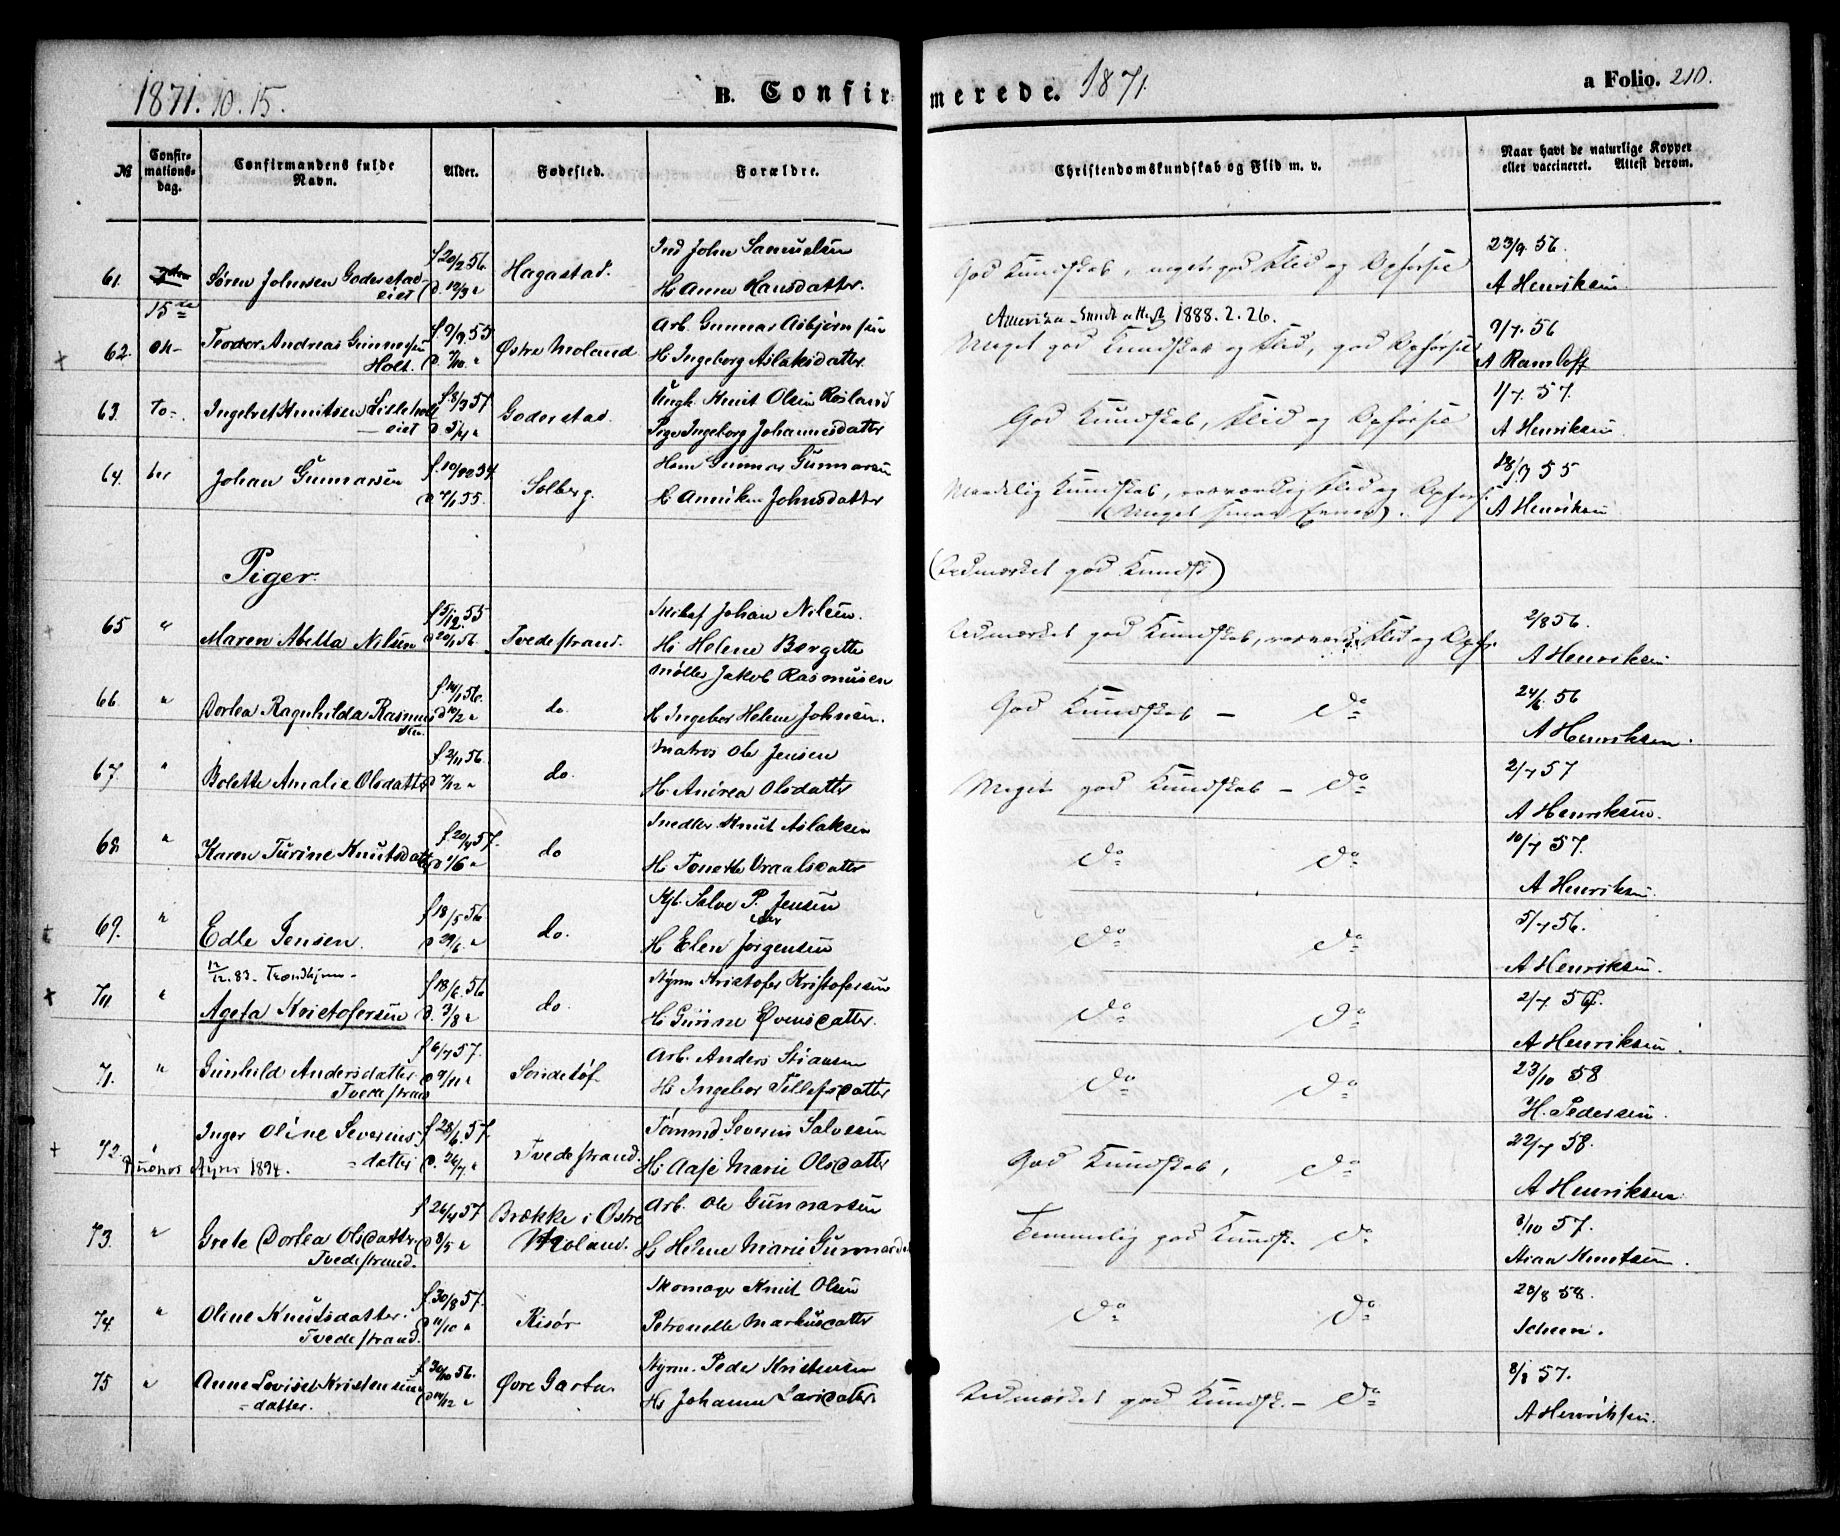 1871. 10. 15.
B. Confirmerede. 1871.
a Folio. 210.
№
Confirmationsdag.
Confirmandens fulde Navn.
Alder.
Fødested.
Forældre.
Christendomskundskab og Flid m. v.
Naar havt de naturlige Kopper eller vaccineret. Attest derom.
61. 15de Søren Johnsen Goderstad eiet f 20/2 56. D. 12/3 " Hagastad. Ind John Samuelsen
H. Anne Hansdatter.
God Kundskab, meget god Flid og Opførsel 23/9. 56.
A Henriksen.
Amerika - 1888. 2. 26.
62. ok- Teodor Andreas Gunnersen Holt. f 9/9 55 D. 7/10. " Østre Moland Arb. Gunnar Asbjørnsen
H. Ingeborg Aslaksdatter.
Meget god Kundskab og Flid, god Opførsel 9/7. 56
A Ramloff
63. to- Ingelret Knutsen Lilleholt eiet f. 8/3 57 D 5/4 " Goderstad. Ungk. Knut Olsen Røsland
Pige Ingeborg Johannesdatter
God Kundskab, Flid og Opførsel 1/7. 57.
A Henriksen
64. ber Johan Gunnarsen f. 10/10 54 D 7/1 55. Solberg. Hsm Gunnar Gunnarsen
H. Anniken Johnsdatter
Maadelig Kundskab, Flid og Opførs.
(Meget smaa Evner). 18/9 55
A Henriksen
Piger.
(Udmærket god Kundsk)
65 " Maren Abella Nilsen f 5/12. 55 D 20/1 56. Tvedestrand. Johan Nilsen.
H. Helene Bergitte
Udmærket god Kundskab, Flid og Opfør. 2/8 56.
A Henriksen
66 " Dorlea Ragnhilda Rasmussen f 14/1 56. D 10/2 " do Møller Jakob Rasmusen
H. Ingebor Helene Johnsen.
God Kundskab - do 24/6. 56
A Henriksen.
67. " Bolette Amalie Olsdatter f 2/11 56. D 7/12 " do. Matros Ole Jensen
H. Andrea Olsdatter
Meget god Kundskab - do 2/7 57
A Henriksen.
68. " Karen Turine Knutsdatter f 20/4 57. D 1/6 " do Snedker Knut Aslaksen
H. Tonette Vraalsdatter
do do 10/7 57.
A Henriksen.
69. " Edle Jensen. f 18/5 56 D 29/6. " do. Salve P. Jensen
H Elen Jørgensen
do do 5/7 56.
A Henriksen.
12/12. 83. Trondhjem-
70 " Ageta Kristofersen f 18/6. 56 D. 3/8 " do. Styrm Kristofer Kristofersen
H. Gurine Øvensdatter.
do do 2/7. 57.
A Henriksen.
71. " Gunhild Andersdatter Tvedestrand f 6/7 57. D 9/11 " Songeløf. Arb. Anders Stiansen
H. Ingebor Tellefsdatter
do do 23/10 58
H. Pedersen.
72. " Inger Oline Severinsdatter f 28/6. 57. D. 26/7. " Tvedestrand. Tømmd. Severin Salvesen
H. Aase Marie Olsdatter
Buenos Ayres 1894.
God Kundskab, do 22/7 58.
A Henriksen
73. " Grete Dorlea Olsdatter. Tvedestrand. f 26/4 57 D 8/5 " Brække i Østre Moland. Arb. Ole Gunnarsen
H. Helene Marie Gunnarsd
Temmelig god Kundsk. do 3/10 57.
Stian Knutsen.
74. " Oline Knutsdatter. Tvedestrand. f. 30/8 57. D 11/10 " Risør Skomager Knut Olsen
Petronelle Markusdatter
do do 28/8 58.
Scheen.
75 " Anne Lovise Kristensen datter. f. 30/10 56. D 14/12 " Øvre Garta. Styrm. Peder Kristensen
H. Johanne Larsdatter.
Udmærket god Kundsk. - do 8/8 57.
A Henriksen.